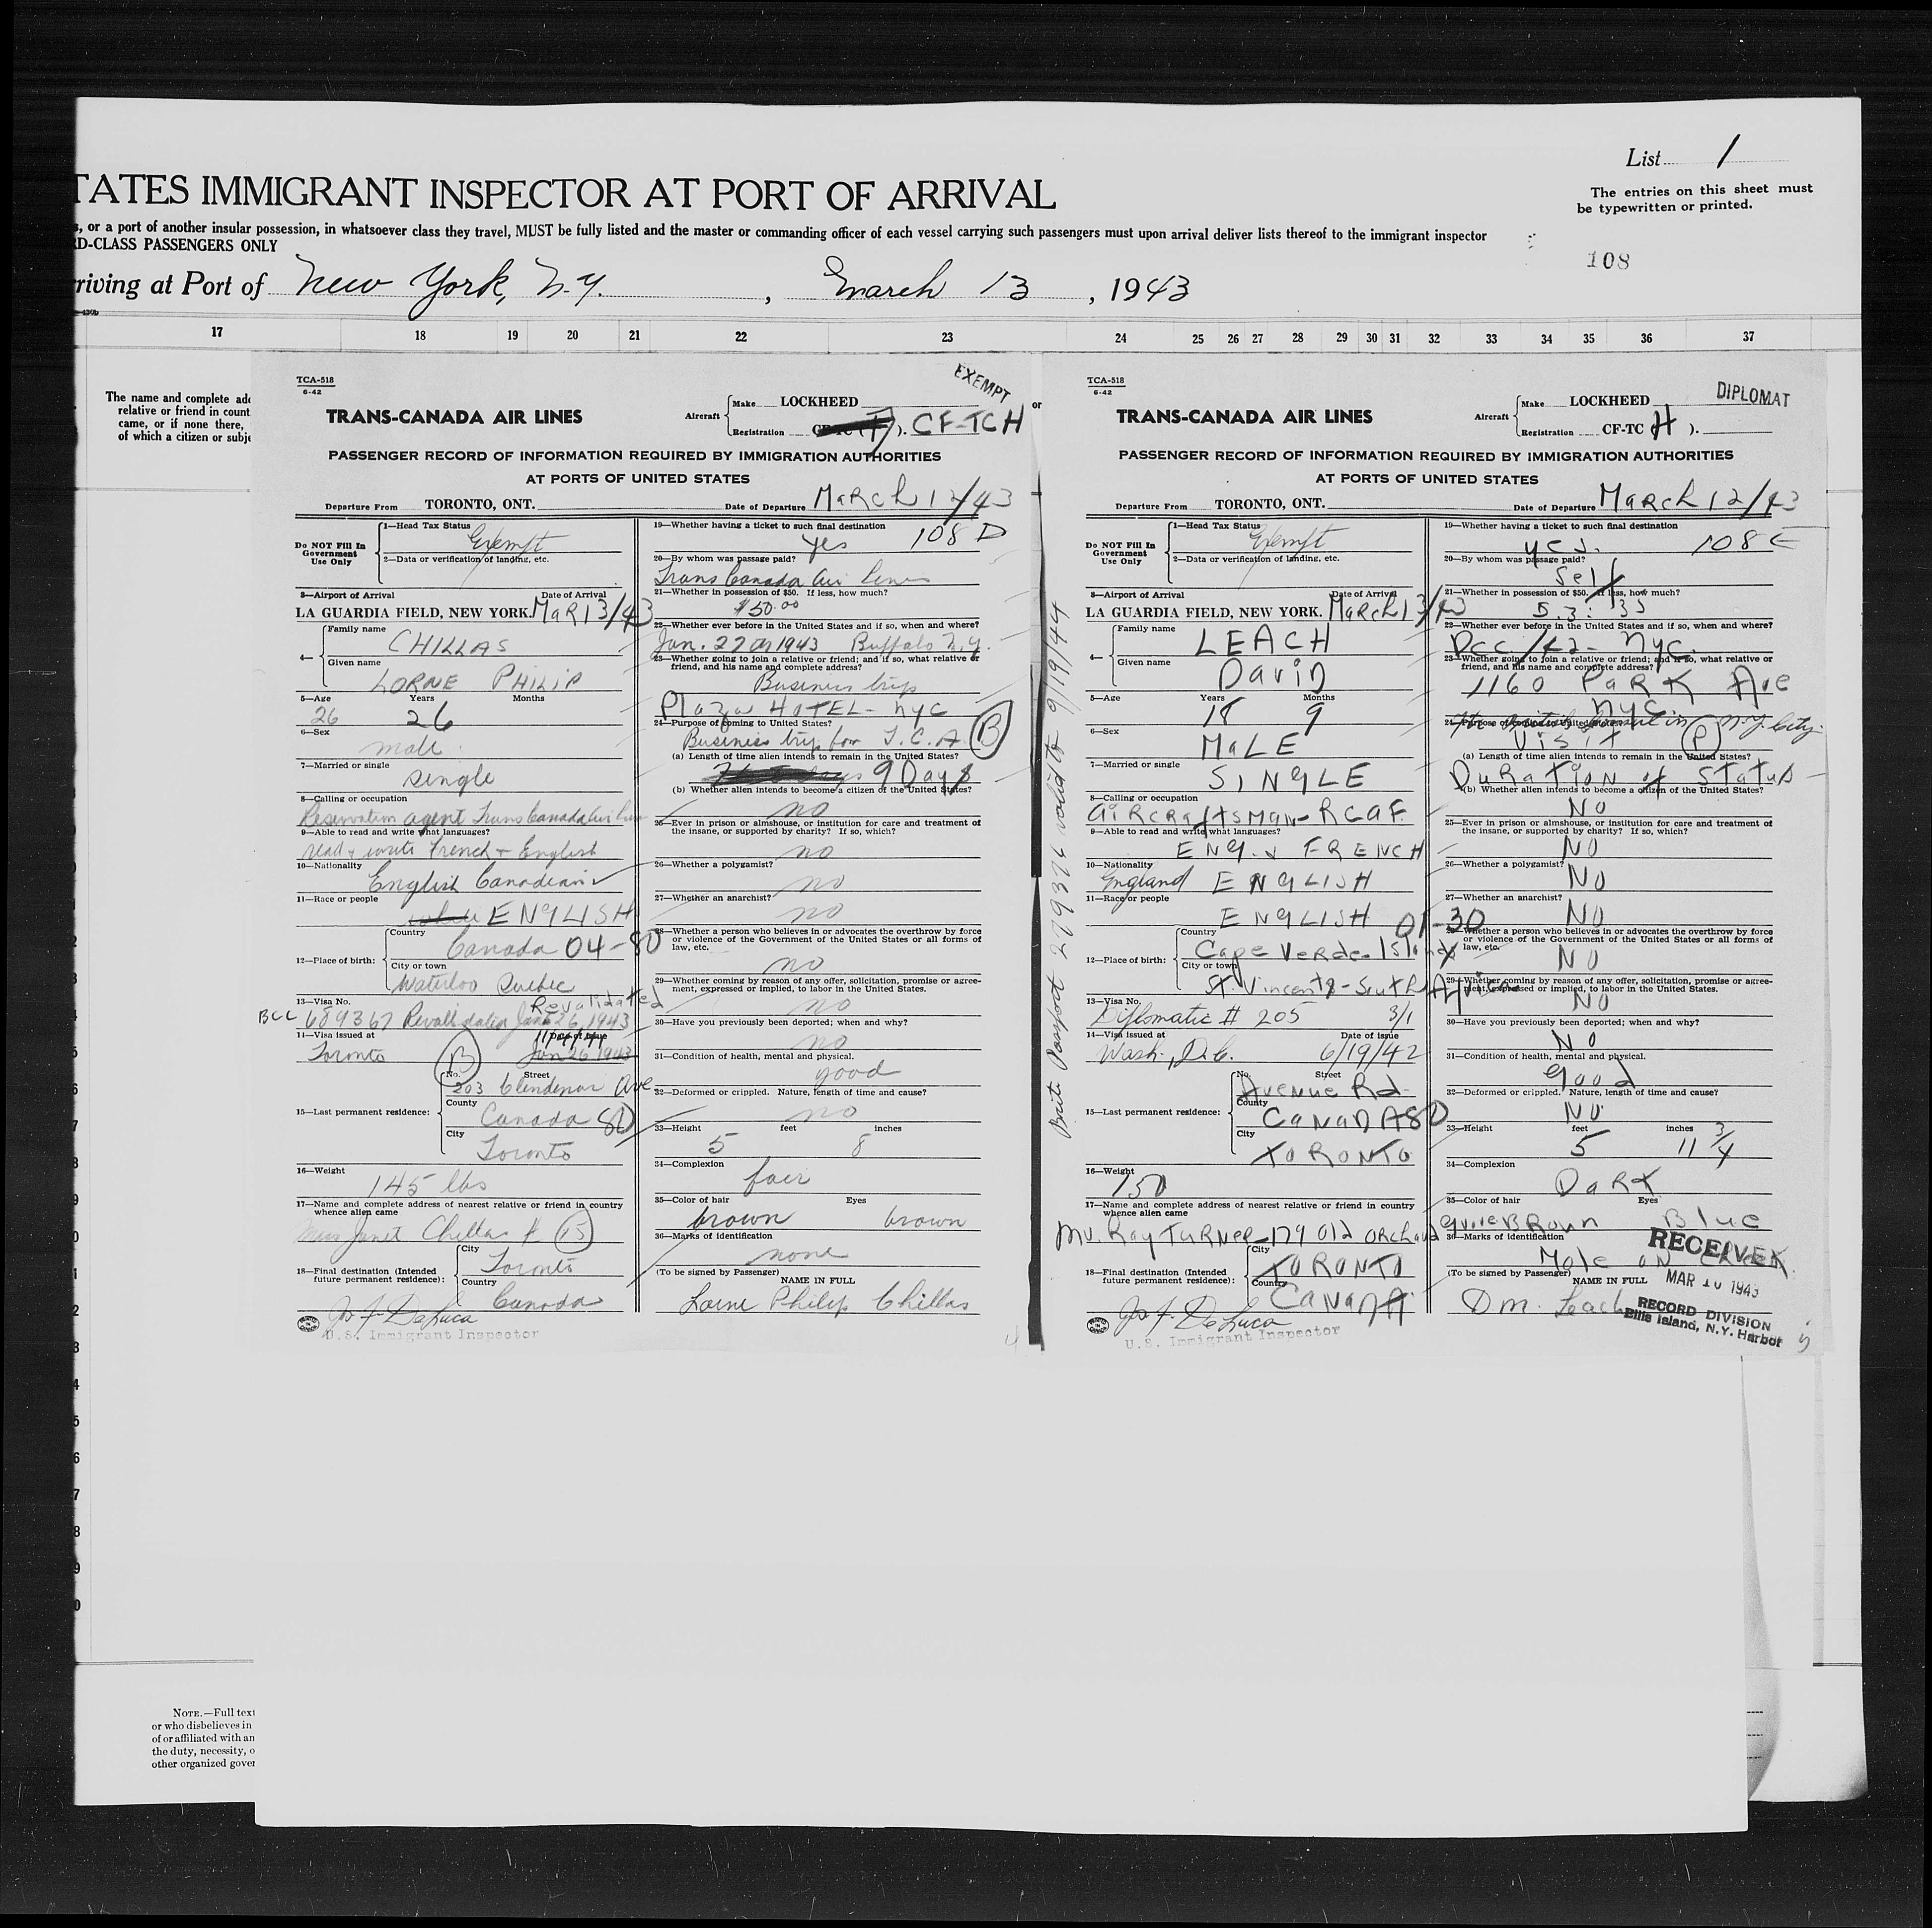 List 1
TATES IMMIGRANT INSPECTOR AT PORT OF ARRIVAL
The entries on this sheet must
be typewritten or printed.
s, or a port of another insular possession, in whatsoever class they travel, MUST be fully listed and the master or commanding officer of each vessel carrying such passengers must upon arrival deliver lists thereof to the immigrant inspector
RD-CLASS PASSENGERS ONLY
108
riving at Port of New York, N.Y. , March 13 , 1943
17 18 19 20 21 22 23 24 25 26 27 28 29 30 31 32 33 34 35 36 37
The name and complete add
relative or friend in count
came, or if none there,
of which a citizen or subje
TCA-518
6-42
EXEMPT
TRANS-CANADA AIR LINES
Aircraft Make LOCKHEED
Registration CF-TCH
PASSENGER RECORD OF INFORMATION REQUIRED BY IMMIGRATION AUTHORITIES
AT PORTS OF UNITED STATES
Departure From TORONTO, ONT. Date of Departure March 12/43
Do NOT Fill In Government Use Only
1—Head Tax Status Exempt
2—Data or verification of landing, etc.
3—Airport of Arrival Date of Arrival
LA GUARDIA FIELD, NEW YORK. Mar 13/43
4— Family name CHILLAS
Given name LORNE PHILIP
5—Age Years Months
26 26
6—Sex
male
7—Married or single
single
8—Calling or occupation
Reservation agent Trans Canada Air Lines
9—Able to read and write what languages?
read + write French + English
10—Nationality
English Canadian
11—Race or people
ENGLISH
12—Place of birth: Country Canada 04-80
City or town
Waterloo Quebec
13—Visa No. Revalidated
BCC 689367 Revalidated Jan 26, 1943
14—Visa issued at Date of issue
Toronto B Jan 26 1943
15—Last permanent residence: No. Street
203 Clendenan Ave
County
Canada 80
City
Toronto
16—Weight
145 lbs
17—Name and complete address of nearest relative or friend in country
whence alien came
Miss Janet Chillas
18—Final destination (Intended
future permanent residence): City Toronto
Country Canada
Jos F. DeLuca
U.S. Immigrant Inspector
19—Whether having a ticket to such final destination
yes 108 D
20—By whom was passage paid?
Trans Canada Air Lines
21—Whether in possession of $50. If less, how much?
$50.00
22—Whether ever before in the United States and if so, when and where?
Jan. 1943 Buffalo N.Y.
23—Whether going to join a relative or friend; and if so, what relative or
friend, and his name and complete address?
Business trip
Plaza HOTEL - NYC
24—Purpose of coming to United States?
Business trip for T.C.A. B
(a) Length of time alien intends to remain in the United States?
9 Days
(b) Whether alien intends to become a citizen of the United States?
no
25—Ever in prison or almshouse, or institution for care and treatment of
the insane, or supported by charity? If so, which?
no
26—Whether a polygamist?
no
27—Whether an anarchist?
no
28—Whether a person who believes in or advocates the overthrow by force
or violence of the Government of the United States or all forms of
law, etc.
no
29—Whether coming by reason of any offer, solicitation, promise or agree-
ment, expressed or implied, to labor in the United States.
no
30—Have you previously been deported; when and why?
no
31—Condition of health, mental and physical.
good
32—Deformed or crippled. Nature, length of time and cause?
no
33—Height feet inches
5 8
34—Complexion
fair
35—Color of hair Eyes
brown brown
36—Marks of identification
none
(To be signed by Passenger)
NAME IN FULL
Lorne Philip Chillas
or
Brit Passport 279374 valid to 9/19/44
TCA-518
6-42
DIPLOMAT
TRANS-CANADA AIR LINES
Aircraft Make LOCKHEED
Registration CF-TC ( H ).
PASSENGER RECORD OF INFORMATION REQUIRED BY IMMIGRATION AUTHORITIES
AT PORTS OF UNITED STATES
Departure From TORONTO, ONT. Date of Departure March 12/43
Do NOT Fill In Government Use Only
1—Head Tax Status Exempt
2—Data or verification of landing, etc.
3—Airport of Arrival Date of Arrival
LA GUARDIA FIELD, NEW YORK. March 13/43
4— Family name LEACH
Given name DaviD
5—Age Years Months
18 9
6—Sex
MaLE
7—Married or single
SINGLE
8—Calling or occupation
aiRCRaftsMaN-RCAF.
9—Able to read and write what languages?
ENG. & FRENCH
10—Nationality
England ENGLISH
11—Race or people
ENGLISH 01-30
12—Place of birth: Country Cape Verde Islands
City or town
St. Vincent - South Africa
13—Visa No.
Diplomatic # 205 3/1
14—Visa issued at Date of issue
Wash., D.C. 6/19/42
15—Last permanent residence: No. Street
Avenue Rd
County
CANADA 80
City
TORONTO
16—Weight
150
17—Name and complete address of nearest relative or friend in country
whence alien came
Mr. Ray TURNER - 179 Old Orchard Grove
18—Final destination (Intended
future permanent residence): City TORONTO
Country CANADA
Jos F. DeLuca
U.S. Immigrant Inspector
19—Whether having a ticket to such final destination
yes. 108 E
20—By whom was passage paid?
Self
21—Whether in possession of $50. If less, how much?
22—Whether ever before in the United States and if so, when and where?
Dec/42 - NYC.
23—Whether going to join a relative or friend; and if so, what relative or
friend, and his name and complete address?
1160 PaRK Ave
NYC.
24—Purpose of coming to United States?
Visit P
(a) Length of time alien intends to remain in the United States?
DuRatioN of Status
(b) Whether alien intends to become a citizen of the United States?
NO
25—Ever in prison or almshouse, or institution for care and treatment of
the insane, or supported by charity? If so, which?
NO
26—Whether a polygamist?
NO
27—Whether an anarchist?
NO
28—Whether a person who believes in or advocates the overthrow by force
or violence of the Government of the United States or all forms of
law, etc.
NO
29—Whether coming by reason of any offer, solicitation, promise or agree-
ment, expressed or implied, to labor in the United States.
NO
30—Have you previously been deported; when and why?
NO
31—Condition of health, mental and physical.
good
32—Deformed or crippled. Nature, length of time and cause?
NO.
33—Height feet inches
5 11 3/4
34—Complexion
DaRK
35—Color of hair Eyes
BRown Blue
36—Marks of identification
Mole on cheek
(To be signed by Passenger)
NAME IN FULL
D.M. Leach
RECEIVED
MAR 16 1943
RECORD DIVISION
Ellis Island, N.Y. Harbor
NOTE.—Full text
or who disbelieves in
of or affiliated with an
the duty, necessity, o
other organized gover